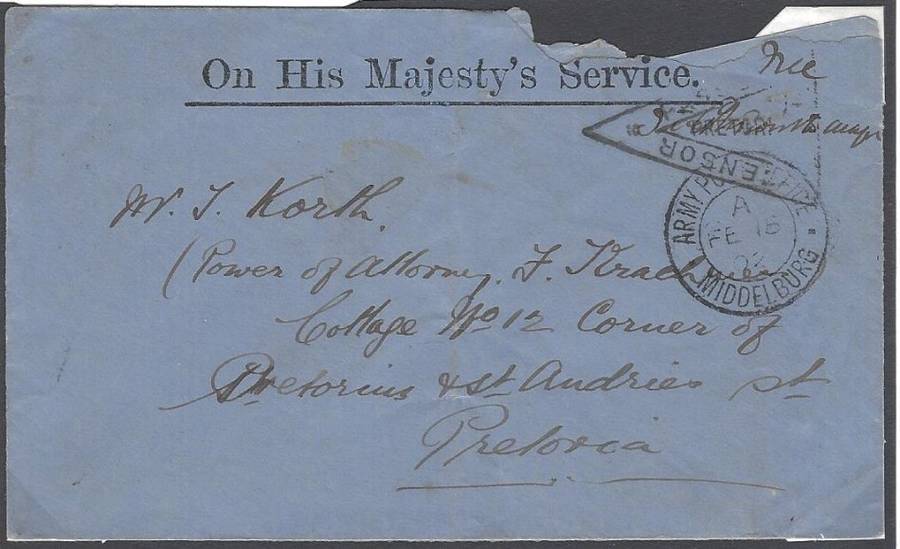 On His Majesty's Service.
Free
CENSOR
PRETORIA
ARMY POST OFFICE
A
FE 15
02
MIDDELBURG
Mr. J. Korth.
(Power of Attorney. F.
Cottage No 12 Corner of
Pretorius & St Andries St
Pretoria